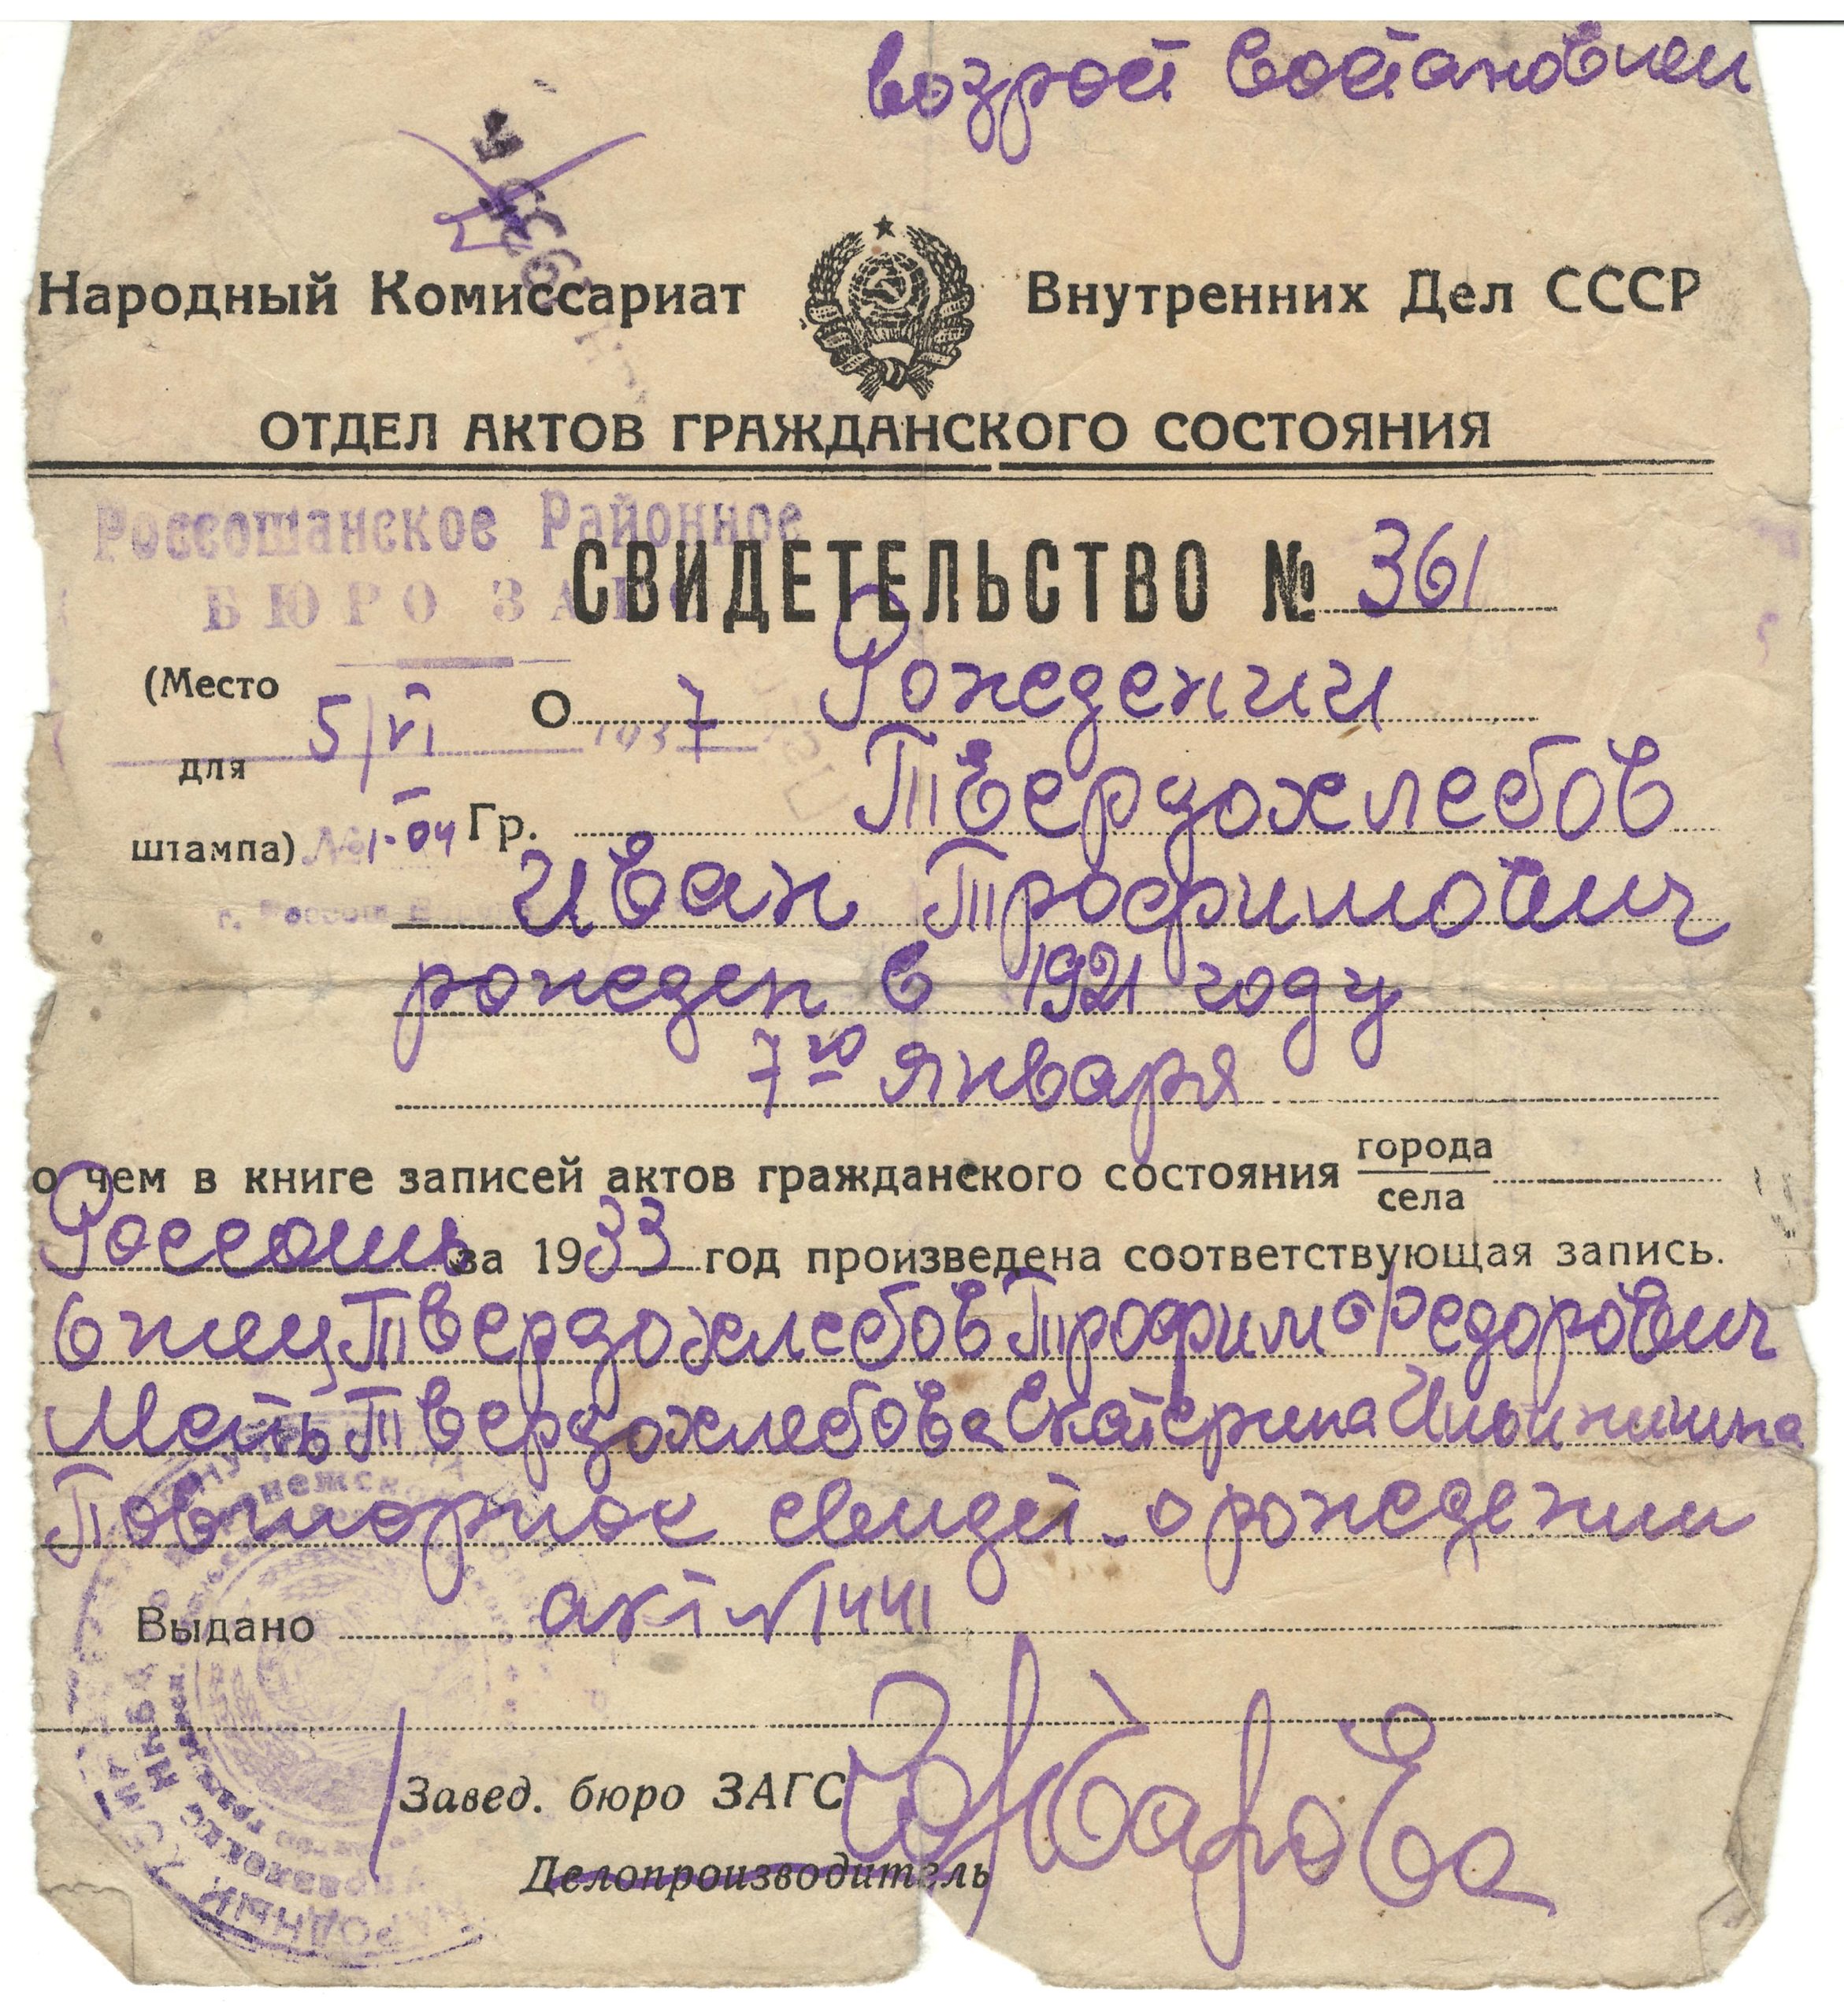 возраст востановлен
Народный Комиссариат Внутренних Дел СССР
ОТДЕЛ АКТОВ ГРАЖДАНСКОГО СОСТОЯНИЯ
Россошанское Районное
БЮРО ЗАГС
СВИДЕТЕЛЬСТВО № 361
(Место для штампа)
5/VI 1937
№ 1-04
г. Россошь
О Рождении
Гр. Твердохлебов
Иван Трофимович
рожден в 1921 году
7го января
о чем в книге записей актов гражданского состояния города
села
Россошь за 1933 год произведена соответствующая запись.
Отец Твердохлебов Трофим Федорович
Мать Твердохлебова Екатерина
Повторное свидет. о рождении
Выдано акт № 1441
Завед. бюро ЗАГС
Делопроизводитель